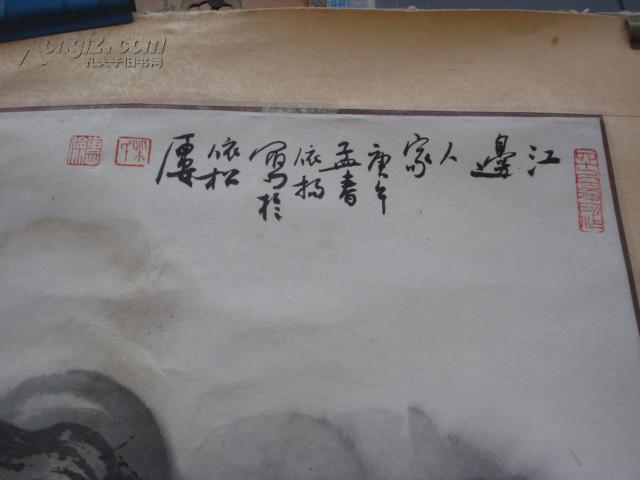 江邊
人
家
庚午
孟春
依楊
寫於
依松
kongfz.com
孔夫子旧书网